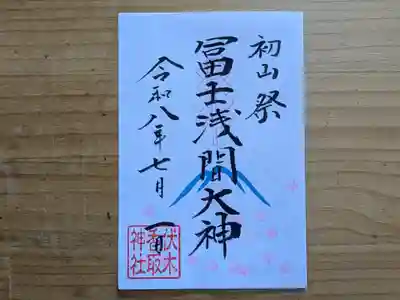 初山祭
冨士浅間大神
令和八年七月一日
伏木
香取
神社